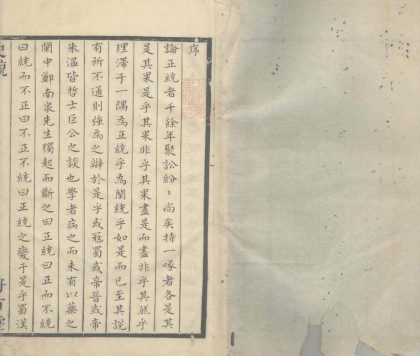 序
論正統者千餘年聚訟紛〻尚矣持一喙者各是其
是其果是乎其果非乎其果盡是而盡非乎其然乎
理滯于一隅為正統乎為閏統乎如是而已至其說
有所不通則強為之辯於是乎或冦蜀或帝晉或帝
朱溫皆哲士巨公之談也學者病之而未有以藥之
閩中鄭南泉先生獨起而斷之曰正統曰正而不統
曰統而不正曰不正不統曰正統之變于是乎蜀漢
史統